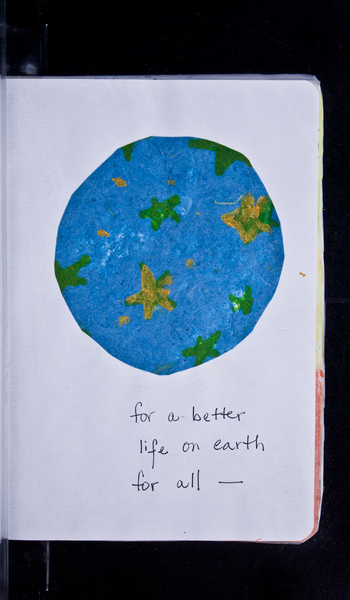 for a better
life on earth
for all —